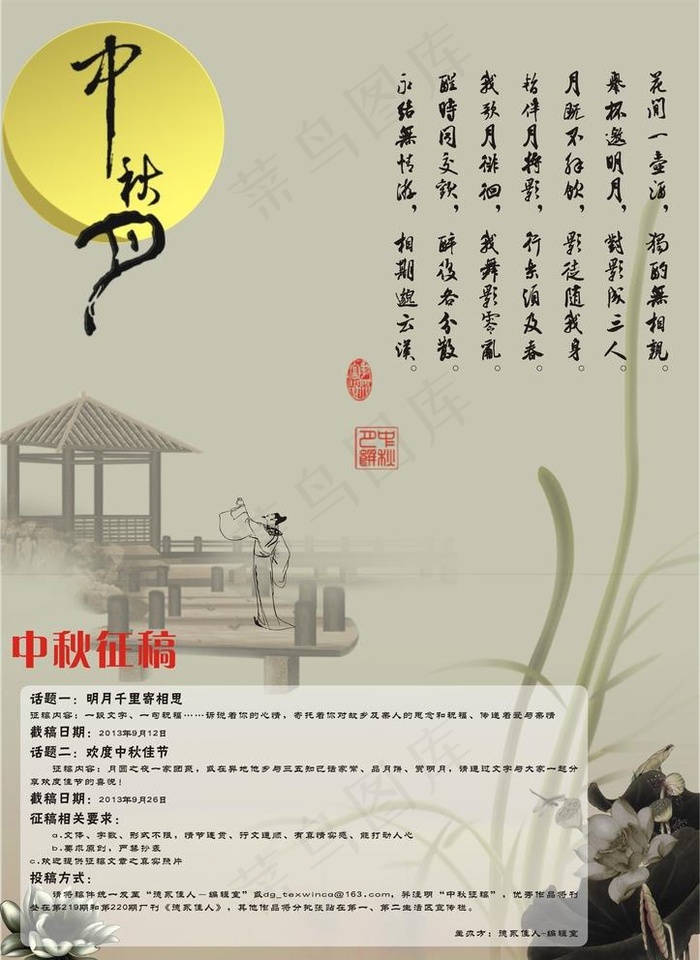 中秋月
花间一壶酒，獨酌無相親。
舉杯邀明月，對影成三人。
月既不解飲，影徒随我身。
暫伴月將影，行樂須及春。
我歌月徘徊，我舞影零亂。
醒時同交歡，醉後各分散。
永结無情游，相期邈云漢。
中秋
中秋征稿
话题一：明月千里寄相思
征稿内容：一段文字、一句祝福……诉说着你的心情，寄托着你对故乡及亲人的思念和祝福、传递着爱与亲情
截稿日期：2013年9月12日
话题二：欢度中秋佳节
征稿内容：月圆之夜一家团聚，或在异地他乡与三五知己话家常、品月饼、赏明月，请通过文字与大家一起分
享欢度佳节的喜悦！
截稿日期：2013年9月26日
征稿相关要求：
a.文体、字数、形式不限，情节连贯、行文通顺、有真情实感、能打动人心
b.要求原创，严禁抄袭
c.欢迎提供征稿文章之真实照片
投稿方式：
请将稿件统一发至“德永佳人－编辑室”或dg_texwinca@163.com，并注明“中秋征稿”，优秀作品将刊
登在第219期和第220期厂刊《德永佳人》，其他作品将分批张贴在第一、第二生活区宣传栏。
主办方：德永佳人-编辑室
菜鸟图库
菜鸟图库
菜鸟图库